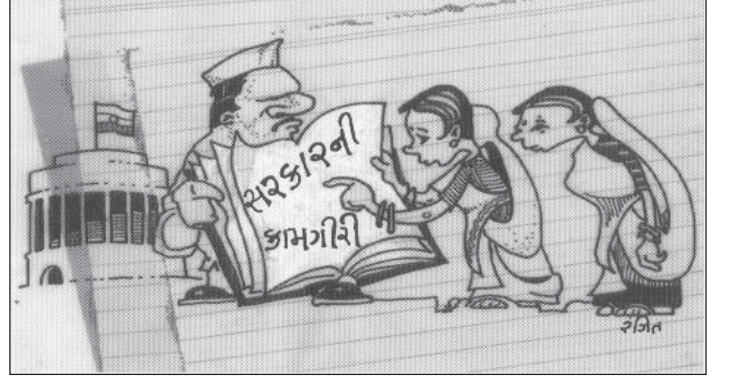 સરકારની
કામગીરી
રજિત